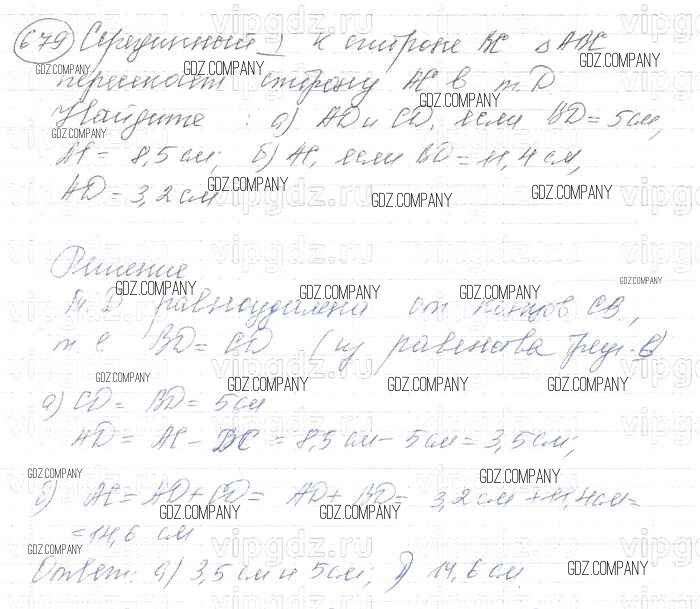 679 Серединный ⊥ к стороне BC △ABC
пересекает сторону AC в т. D
Найдите: а) AD и CD, если BD = 5 см,
AC = 8,5 см; б) AC, если BD = 11,4 см,
AD = 3,2 см
Решение
Т. D равноудалена от концов CB,
т.е. BD = CD (из равенства треуг-в)
а) CD = BD = 5 см
AD = AC - DC = 8,5 см - 5 см = 3,5 см;
б) AC = AD + CD = AD + BD = 3,2 см + 11,4 см =
= 14,6 см
Ответ: а) 3,5 см и 5 см; б) 14,6 см.